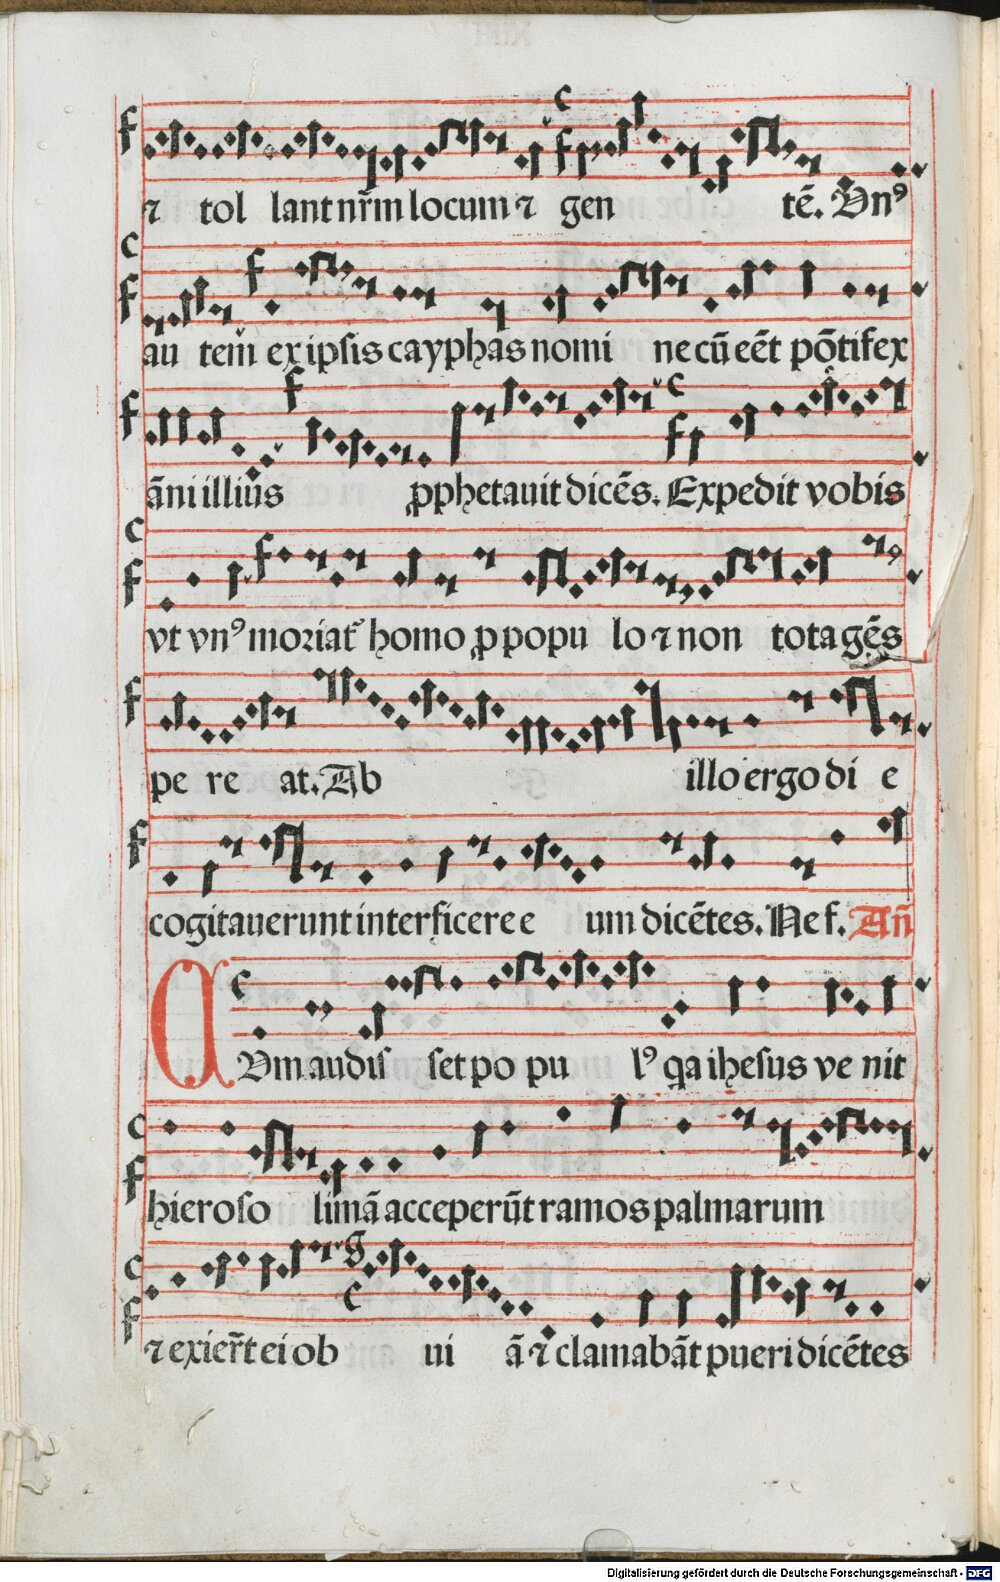 ⁊ tol lant nr̄m locum ⁊ gen tē. Vnꝰ
au tem ex ipsis cayphas nomi ne cū eēt pōtifex
āni illius ꝓphetauit dicēs. Expedit vobis
vt vnꝰ moriat᷑ homo ꝓ popu lo ⁊ non tota gēs
pe re at. Ab illo ergo di e
cogitauerunt interficere e um dicētes. Ne f. An̄
CVm audis set po pu lꝰ qa ihesus ve nit
hieroso limā acceperūt ramos palmarum
⁊ exier̄t ei ob ui ā ⁊ clamabāt pueri dicētes
Digitalisierung gefördert durch die Deutsche Forschungsgemeinschaft - DFG